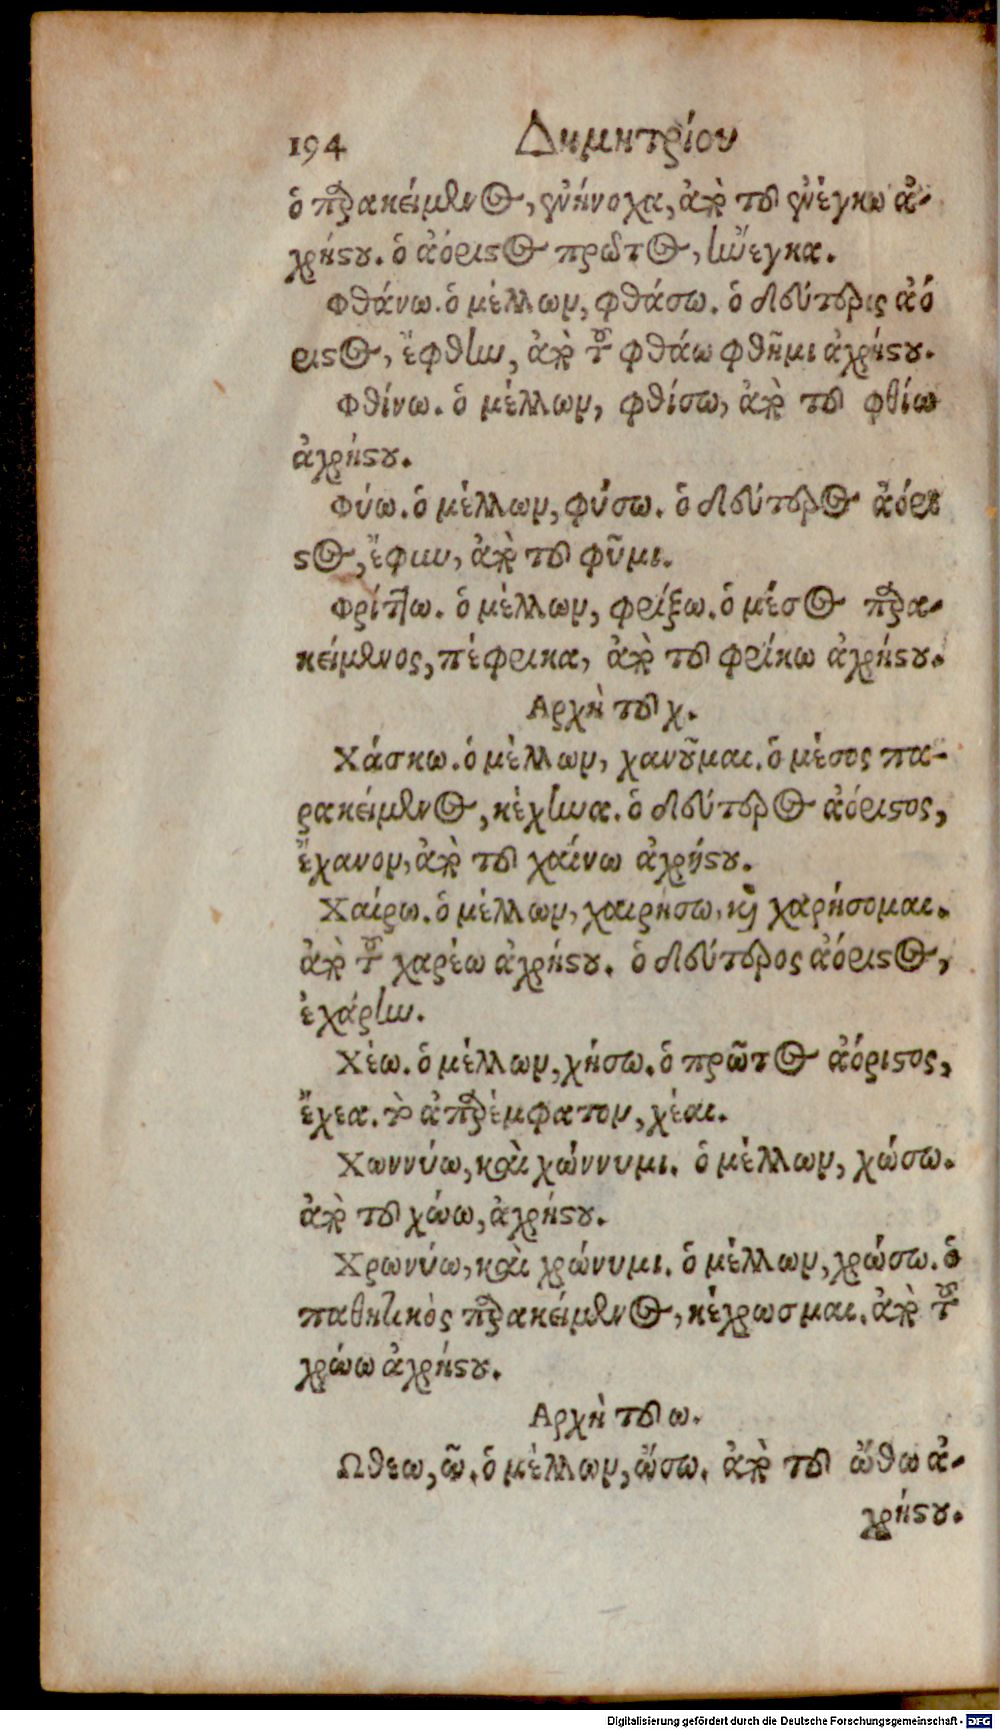 194 Δημητρίου
ὁ παρακείμενος, ἐνήνοχα, ἀπὸ τοῦ ἐνέγκω ἀ-
χρήστου. ὁ ἀόριστος πρῶτος, ἤνεγκα.
Φθάνω. ὁ μέλλων, φθάσω. ὁ δεύτερος ἀό
ριστος, ἔφθην, ἀπὸ τοῦ φθάω φθῆμι ἀχρήστου.
Φθίνω. ὁ μέλλων, φθίσω, ἀπὸ τοῦ φθίω
ἀχρήστου.
Φύω. ὁ μέλλων, φύσω. ὁ δεύτερος ἀόρι
στος, ἔφυν, ἀπὸ τοῦ φῦμι.
Φρίττω. ὁ μέλλων, φρίξω. ὁ μέσος παρα-
κείμενος, πέφρικα, ἀπὸ τοῦ φρίκω ἀχρήστου.
Αρχὴ τοῦ χ.
Χάσκω. ὁ μέλλων, χανοῦμαι. ὁ μέσος πα-
ρακείμενος, κέχηνα. ὁ δεύτερος ἀόριστος,
ἔχανον, ἀπὸ τοῦ χαίνω ἀχρήστου.
Χαίρω. ὁ μέλλων, χαιρήσω, καὶ χαρήσομαι.
ἀπὸ τοῦ χαρέω ἀχρήστου. ὁ δεύτερος ἀόριστος,
ἐχάρην.
Χέω. ὁ μέλλων, χήσω. ὁ πρῶτος ἀόριστος,
ἔχεα. τὸ ἀπαρέμφατον, χέαι.
Χωννύω, καὶ χώννυμι. ὁ μέλλων, χώσω.
ἀπὸ τοῦ χώω, ἀχρήστου.
Χρωνύω, καὶ χρώνυμι. ὁ μέλλων, χρώσω. ὁ
παθητικὸς παρακείμενος, κέχρωσμαι. ἀπὸ τοῦ
χρώω ἀχρήστου.
Αρχὴ τοῦ ω.
Ωθεω, ῶ. ὁ μέλλων, ὤσω. ἀπὸ τοῦ ὤθω ἀ-
χρήστου.
Digitalisierung gefördert durch die Deutsche Forschungsgemeinschaft - DFG